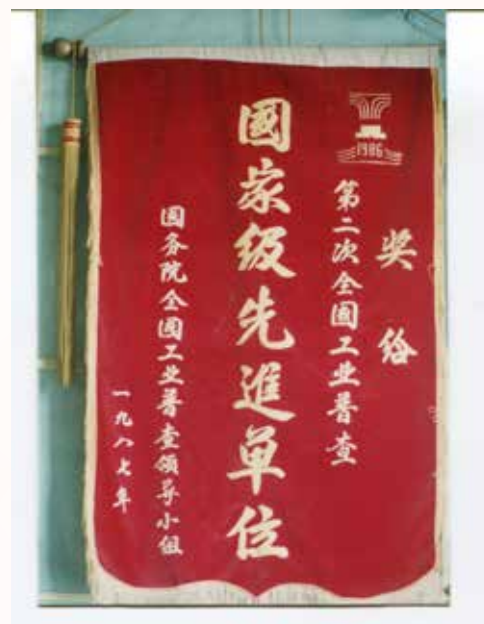 1986
奖给
第二次全国工业普查
國家级先進单位
国务院全国工业普查领导小组
一九八七年